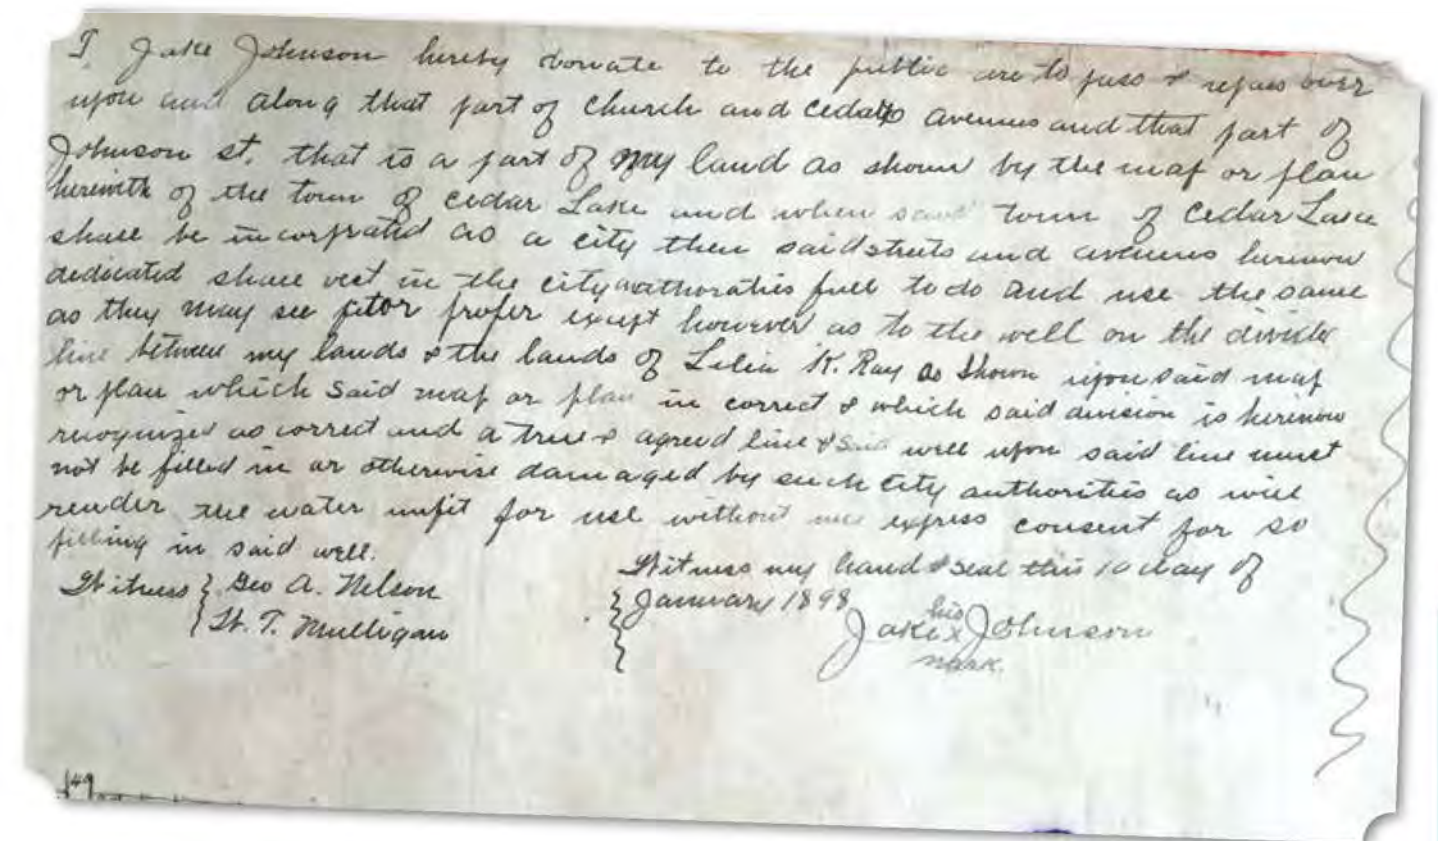 I, Jake Johnson hereby donate to the public use to pass & repass over
upon and along that part of Church and Cedar avenues and that part of
Johnson st. that is a part of my land as shown by the map or plan
herewith of the town of Cedar Lake and when said town of Cedar Lake
shall be incorprated as a city then said streets and avenues hereinon
dedicated shall vest in the city authoraties full to do and use the same
as they may see fit or proper except however as to the well on the divide
line between my lands & the lands of K. Ray as shown upon said map
or plan which said map or plan in correct & which said division is hereinon
recognized as correct and a true & agreed line & said well upon said line must
not be filled in or otherwise damaged by such City authorities as will
render the water unfit for use without express consent for so
filling in said well.
Witness my hand & seal this 10 day of
January 1898
Witness } Geo A. Nelson
} W. T. Mulligan
his
Jake x Johnson
mark.
149